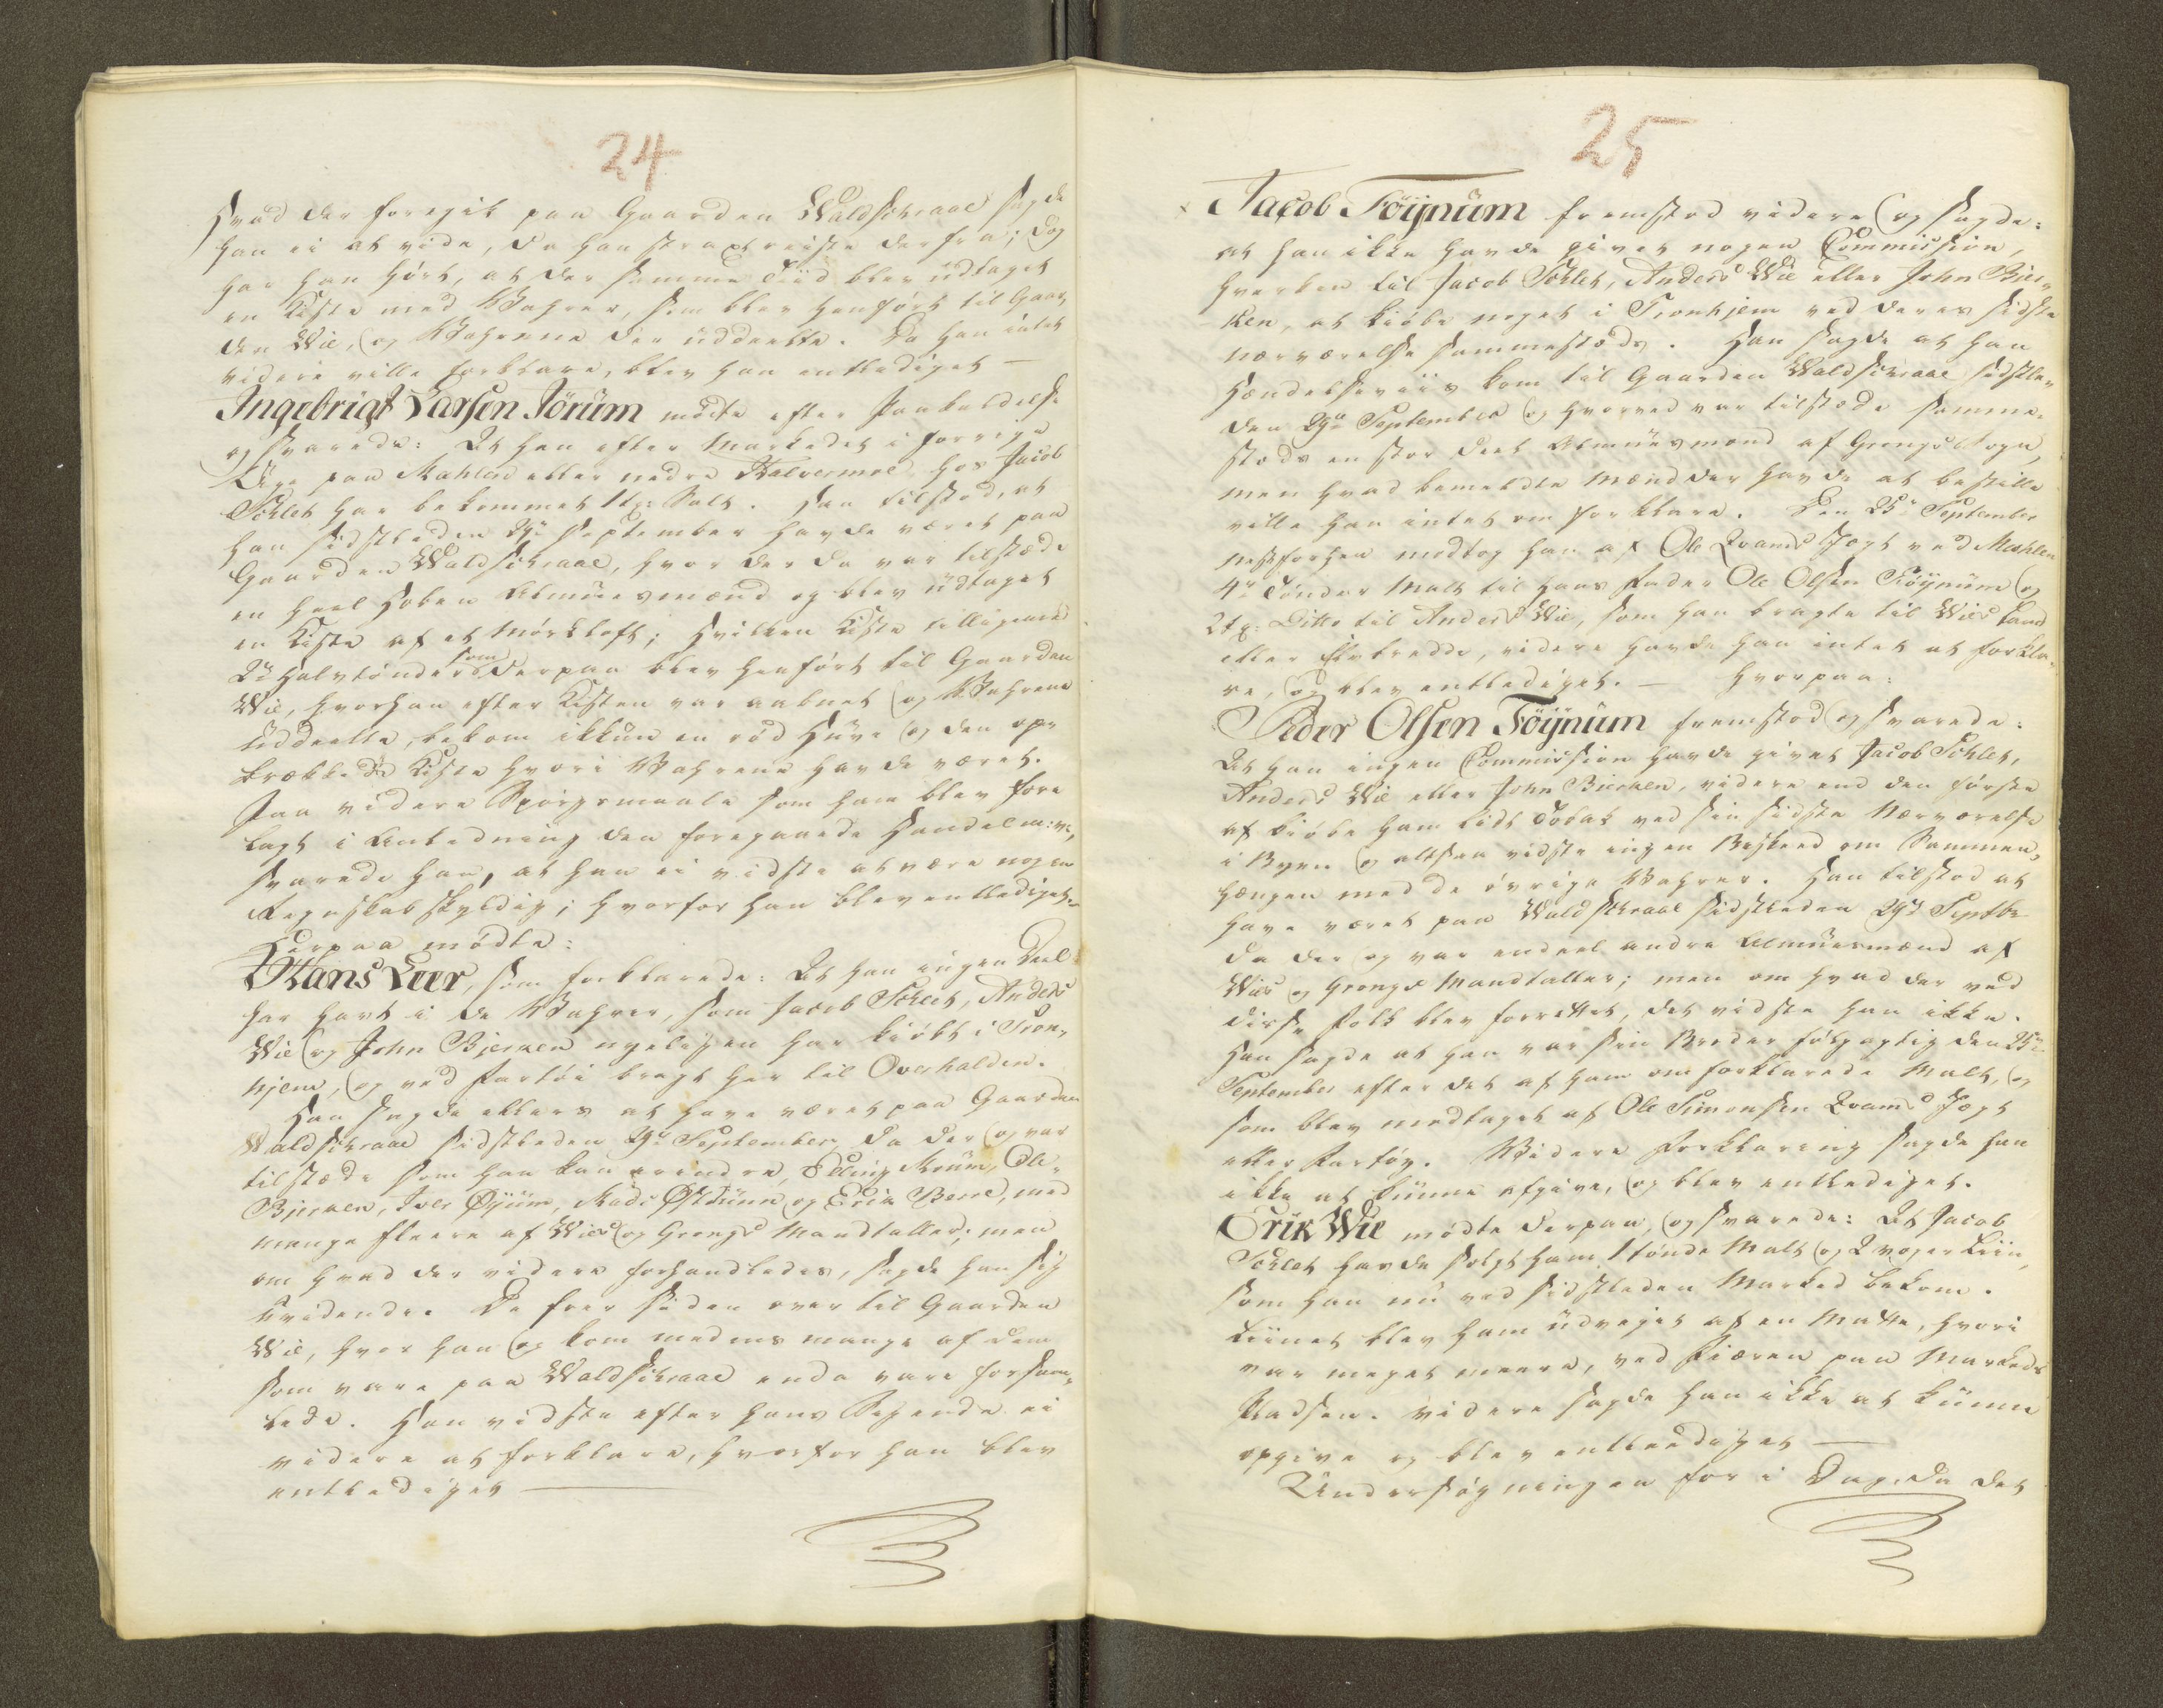 24
Hvad der foregik paa Gaarden Waldschraae sagde
han ei at vide, da han strax reiste derfra; dog
har han hørt, at der samme Tiid blev üdtaget
en Kiste med Wahrer, som blev henført til Gaar-
den Wie, og Wahrene der üddeelte. Da han intet
videre ville forklare, blev han entlediget —
Ingebrigt Larsen Jörüm mødte efter Paakaldelse
og svarede: At han efter Markedet i forrige
Uge paa Mahlen eller nedre Halvermoe hos Jacob
Schlet har bekommet 1 tg: Salt. Han tilstod, at
han sidstleden 29de September havde været paa
Gaarden Waldschraae, hvor der da var tilstæde
en heel Hoben Almuesmænd og blev üdtaget
en Kiste af et Mørkloft; hvilken Kiste tilligemed
2de Halvtønder som derpaa blev henført til Gaarden
Wie, hvor han efter Kisten var aabnet og Wahrene
üddeelte, bekom ikkun en rød Hüve og den op-
brækkede Kiste hvori Wahrene havde været.
Paa videre Spørgsmaale som ham blev fore
lagt i Anledning den foregaaede Handel m: v:,
svarede han, at han ei vidste at være nogen
Regnskab skyldig; hvorfor han blev entlediget.
Derpaa mødte:
Hans Lier, som forklarede: At han ingen Deel
har havt i de Wahrer, som Jacob Schlet, Anders
Wie og John Bjerken nyeligen har kiøbt i Tron-
hjem, og ved Fartøi bragt her til Overhalden.
Han sagde ellers at have været paa Gaarden
Waldschraae sidstleden 29de September, da der og var
tilstæde som han kan erindre, Elling Moüm, Ole
Bjerken, Iver Øyüm, Mads Østdünn og Erik Berre, med
mange fleere af Wies og Grongs Mandtaller, men
om hvad der videre forhandledes, sagde han sig
uvidende. De foer siden over til Gaarden
Wie, hvor han og kom medens mange af dem
som vare paa Waldschraae enda vare forsam-
lede. Han vidste efter hans Sigende ei
videre at forklare, hvorfor han blev
entlediget —
25
Jacob Föijnüm fremstod videre og sagde:
at han ikke havde givet nogen Commission,
hverken til Jacob Schlet, Anders Wie eller John Bier-
ken, at kiøbe noget i Tronhjem ved deres sidste
nærværelse sammestæds. Han sagde at han
hændelseviis kom til Gaarden Waldschraae sidstle-
den 29de September og hvorved var tilstæde samme-
stæds en stor Deel Almuesmænd af Grongs Sogn,
men hvad bemeldte Mænd der havde at bestille
ville han intet om forklare. Den 25de September
nestforhen modtog han af Ole Qvams Jægt ved Mæhlen
4re Tønder Malt til hans Fader Ole Olsen Föijnüm og
2 tg: Ditto til Anders Wie, som han bragte til Wies Land
eller Elvbredde, videre havde han intet at forkla-
re, og blev entlediget. — Hvorpaa:
Peder Olsen Föijnüm fremstod og svarede:
At han ingen Commission havde givet Jacob Schlet,
Anders Wie eller John Bierken, videre end den første
at kiøbe ham lidt Tobak ved sin sidste Nærværelse
i Byen og altsaa vidste ingen Beskeed om Sammen-
hængen med de øvrige Wahrer. Han tilstod at
have været paa Waldschraae sidstleden 29de Septbr
da der og var endeel andre Almuesmænd af
Wies og Grongs Mandtaller; men om hvad der ved
disse Folk blev forrettet, det vidste han ikke.
Han sagde at han var sin Broder følgagtig den 25de
September efter det af ham om forklarede Malt, og
som blev modtaget af Ole Simonsen Qvams Jægt
eller Fartøy. Videre Forklaring sagde han
ikke at künne afgive, og blev entlediget.
Erik Wie mødte derpaa, og svarede: At Jacob
Schlet havde solgt ham 1 tønde Malt og 2 voger Liin,
som han nü ved sidstleden Marked bekom.
Liinet blev ham üdveyet af en Matte, hvori
var meget meere, ved Fiæren paa Markeds
Pladsen. Videre sagde han ikke at künne
opgive og blev entlediget —
Undersøgningen for i Dag, da det